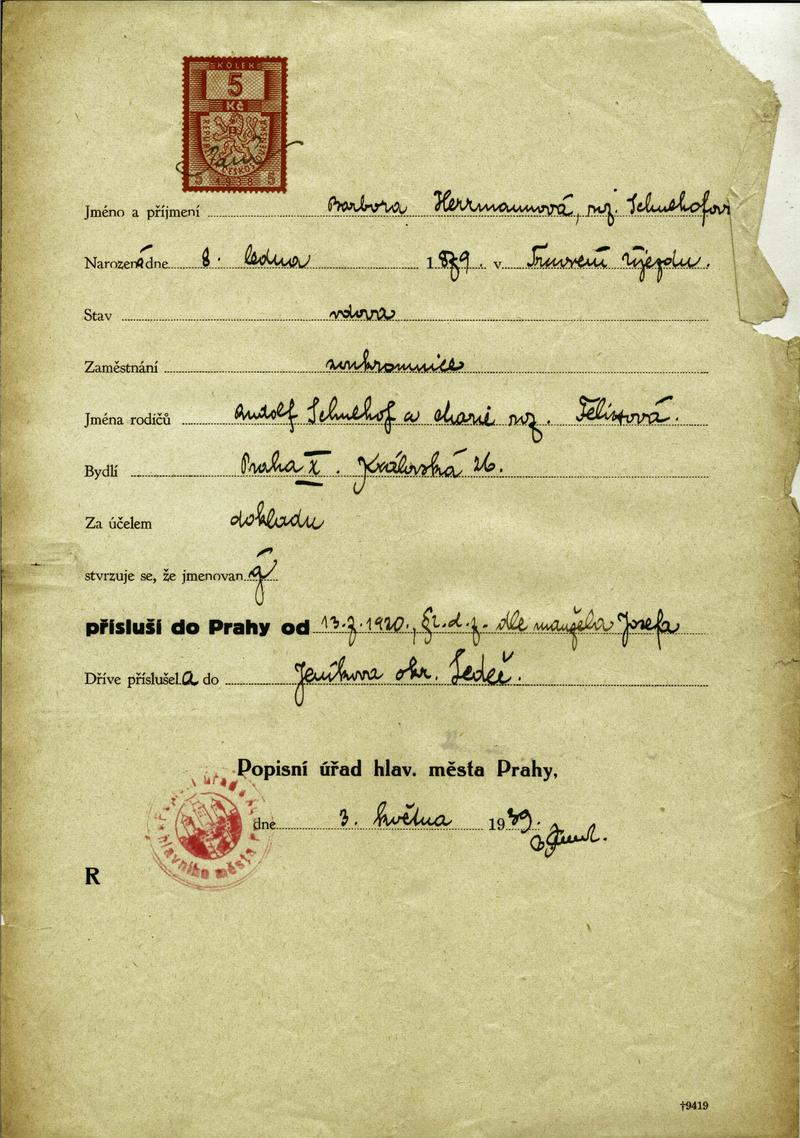 KOLEK
5
Kč
REPUBLIKA ČESKOSLOVENSKÁ
5 1938 5
Jméno a příjmení Barbora Herrmannová, roz. Schulhofov
Narozená dne 8. ledna 1879. v Újezdu.
Stav vdova
Zaměstnání soukromnice
Jména rodičů Rudolf Schulhof a roz.
Bydlí Praha X. Královská 26.
Za účelem dokladu
stvrzuje se, že jmenovaná
přísluší do Prahy od 13.7.1920., dle manžela Josefa
Dříve příslušela do Jeníkova okr. Ledeč.
Popisní úřad hlav. města Prahy,
dne 3. května 1939.
hlavního města
R
†9419